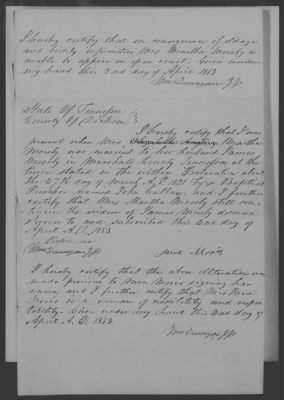 I hereby certify that in consequence of old age
and bodily infirmities Mrs Martha Mosely is
unable to appear in open court. Given under
my hand this 2nd day of April 1853
Wm Dunegan JP
State Of Tennessee
County Of Dickson
I hereby certify that I was
present when Mrs Martha
Mosely was married to her husband James
Mosely in Marshall County Tennessee at the
time stated in the within Declaration about
the 27th day of March A.D. 1828 by a Baptist
Preacher named John and I further
certify that Mrs Martha Mosely still
the widow of James Mosely deceased
Sworn to and subscribed this 2nd day of
April A.D. 1853
Before me
Wm Dunegan JP
Jane Moris
I hereby certify that the above alteration was
made previous to Mrs Moris signing her
name, and I further certify that Mrs Jane
Moris is a woman of credibility and respec
tability. Given under my hand this 2nd day of
April A.D. 1853
Wm Dunegan JP